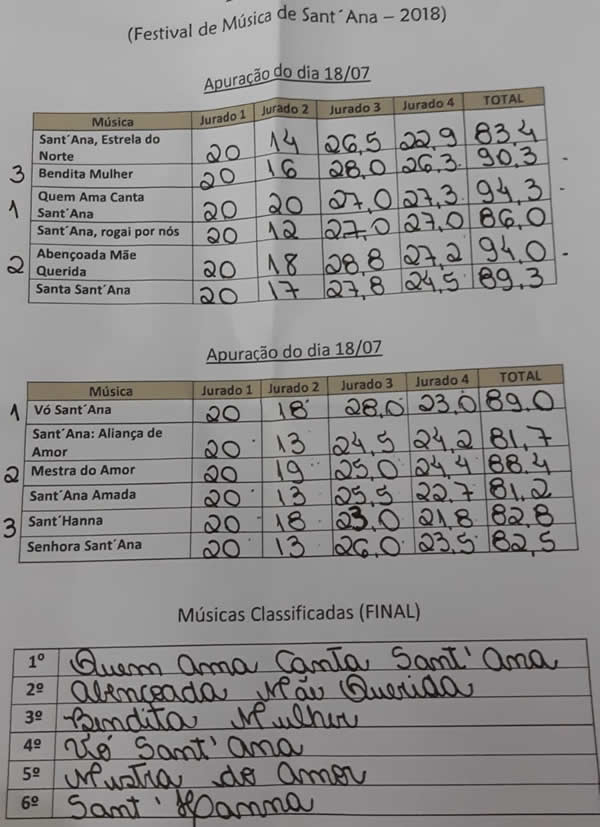 (Festival de Música de Sant´Ana – 2018)
Apuração do dia 18/07
Música Jurado 1 Jurado 2 Jurado 3 Jurado 4 TOTAL
Sant´Ana, Estrela do
Norte 20 14 26,5 22,9 83,4
3 Bendita Mulher 20 16 28,0 26,3 90,3
1 Quem Ama Canta
Sant´Ana 20 20 27,0 27,3 94,3
Sant´Ana, rogai por nós 20 12 27,0 27,0 86,0
2 Abençoada Mãe
Querida 20 18 28,8 27,2 94,0
Santa Sant´Ana 20 17 27,8 24,5 89,3
Apuração do dia 18/07
Música Jurado 1 Jurado 2 Jurado 3 Jurado 4 TOTAL
1 Vó Sant´Ana 20 18 28,0 23,0 89,0
Sant´Ana: Aliança de
Amor 20 13 24,5 24,2 81,7
2 Mestra do Amor 20 19 25,0 24,4 88,4
Sant´Ana Amada 20 13 25,5 22,7 81,2
3 Sant´Hanna 20 18 23,0 21,8 82,8
Senhora Sant´Ana 20 13 26,0 23,5 82,5
Músicas Classificadas (FINAL)
1º Quem ama Canta Sant' ana
2º abençoada Mãe Querida
3º Bendita Mulher
4º Vó Sant' ana
5º Mestra do amor
6º Sant' Hanna